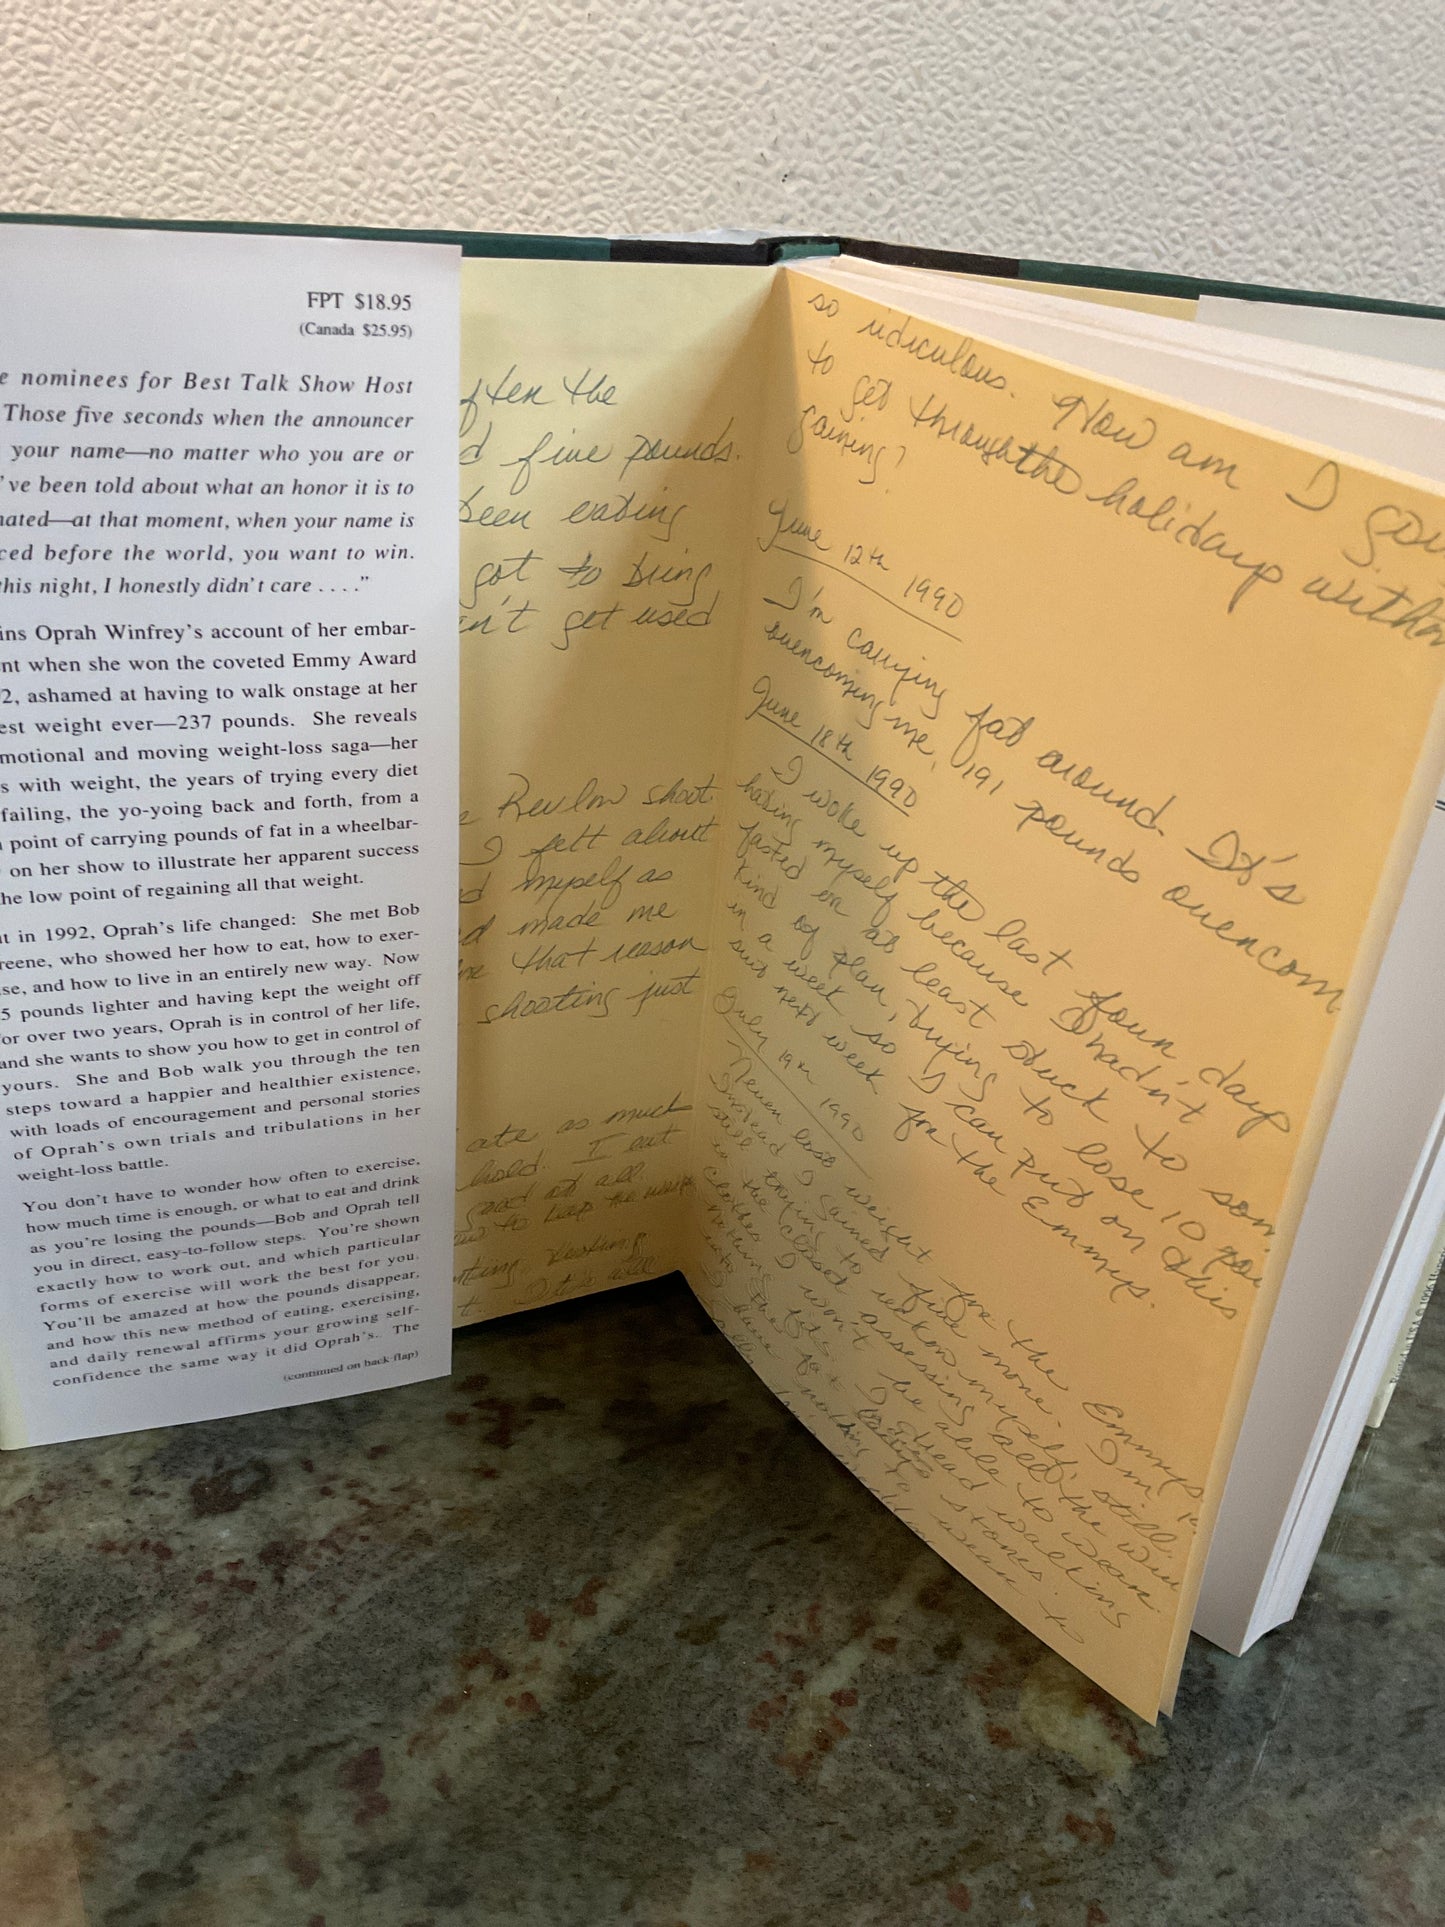 FPT $18.95
(Canada $25.95)
e nominees for Best Talk Show Host
Those five seconds when the announcer
your name—no matter who you are or
've been told about what an honor it is to
nated—at that moment, when your name is
ced before the world, you want to win.
this night, I honestly didn't care . . . ."
ins Oprah Winfrey's account of her embar-
nt when she won the coveted Emmy Award
2, ashamed at having to walk onstage at her
est weight ever—237 pounds. She reveals
motional and moving weight-loss saga—her
s with weight, the years of trying every diet
failing, the yo-yoing back and forth, from a
point of carrying pounds of fat in a wheelbar-
on her show to illustrate her apparent success
he low point of regaining all that weight.
t in 1992, Oprah's life changed: She met Bob
reene, who showed her how to eat, how to exer-
se, and how to live in an entirely new way. Now
5 pounds lighter and having kept the weight off
or over two years, Oprah is in control of her life,
and she wants to show you how to get in control of
yours. She and Bob walk you through the ten
steps toward a happier and healthier existence,
with loads of encouragement and personal stories
of Oprah's own trials and tribulations in her
weight-loss battle.
You don't have to wonder how often to exercise,
how much time is enough, or what to eat and drink
as you're losing the pounds—Bob and Oprah tell
you in direct, easy-to-follow steps. You're shown
exactly how to work out, and which particular
forms of exercise will work the best for you.
You'll be amazed at how the pounds disappear,
and how this new method of eating, exercising,
and daily renewal affirms your growing self-
confidence the same way it did Oprah's. The
(continued on back flap)
ften the
d five pounds.
been eating
got to bring
n't get used
e Revlon shoot
I felt about
ed myself as
d made me
that reason
shooting just
ate as much
hold. I eat
good at all.
to keep the
so ridiculous. How am I goi
to get through the holidays witho
gaining?
June 12th 1990
I'm carrying fat around. It's
overcoming me. 191 pounds overcom
June 18th 1990
I woke up the last four days
hating myself because I hadn't
fasted or at least stuck to som
kind of plan, trying to lose 10 pou
in a week so I can put on this
suit next week for the Emmys.
July 19th 1990
Never lost weight for the Emmys.
Instead I gained five more. I'm still
still trying to reckon myself
in the closet assessing all the
clothes I won't be able to wear.
I dread walking